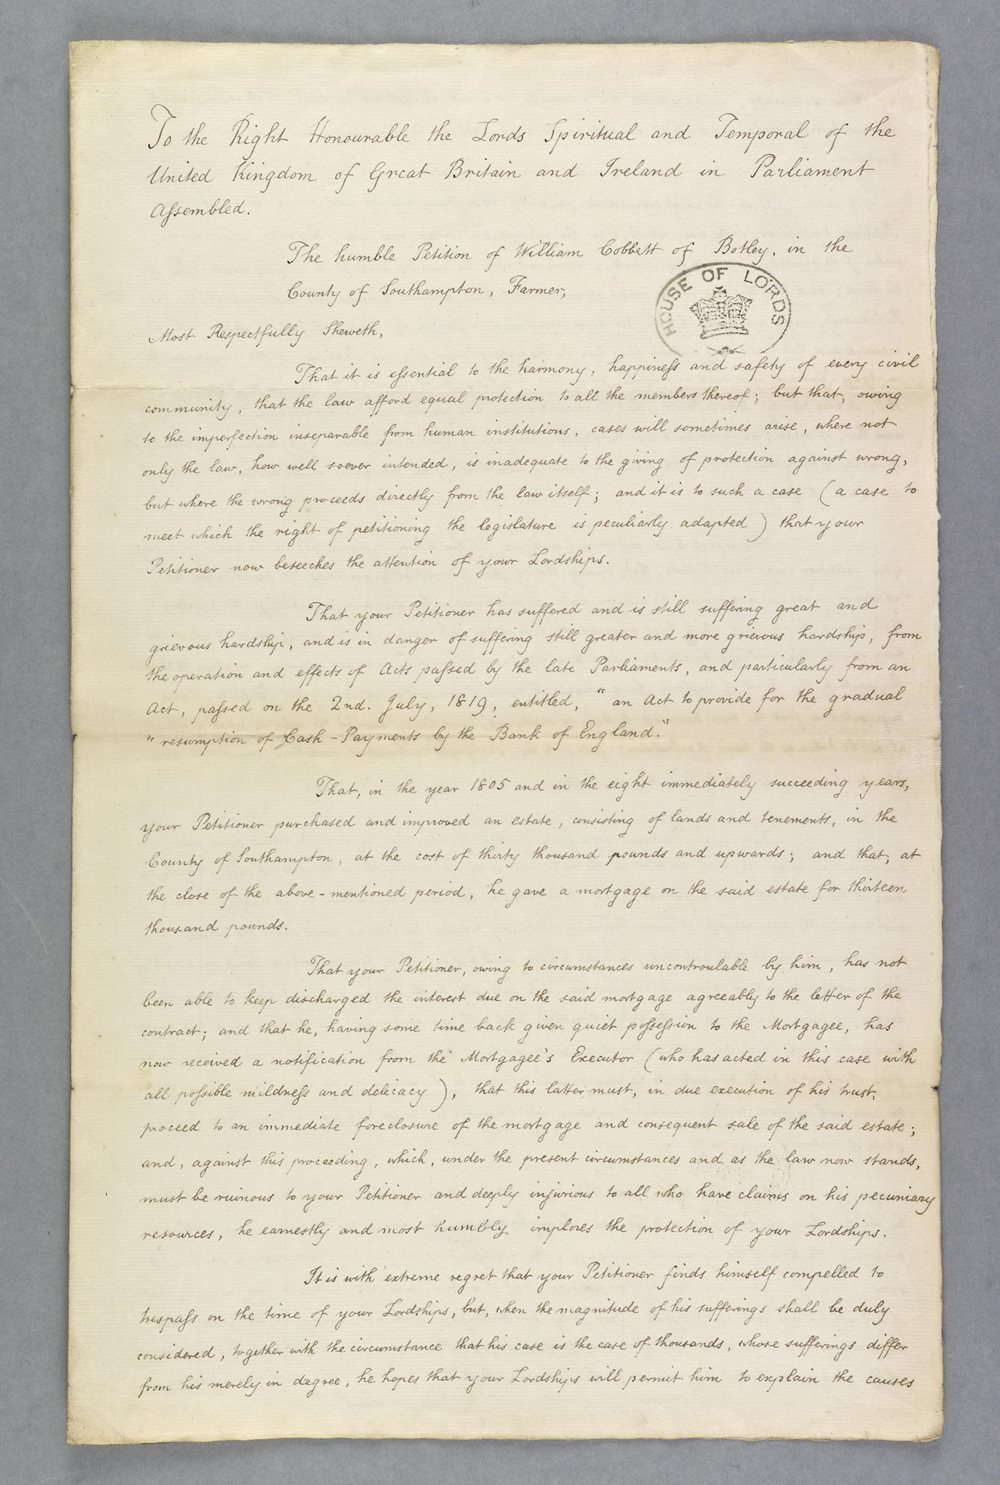 To the Right Honourable the Lords Spiritual and Temporal of the
United Kingdom of Great Britain and Ireland in Parliament
Assembled.
The humble Petition of William Cobbett of Botley, in the
County of Southampton, Farmer,
HOUSE OF LORDS
Most Respectfully Sheweth,
That it is essential to the harmony, happiness and safety of every civil
community, that the law afford equal protection to all the members thereof; but that, owing
to the imperfection inseparable from human institutions, cases will sometimes arise, where not
only the law, how well soever intended, is inadequate to the giving of protection against wrong,
but where the wrong proceeds directly from the law itself; and it is to such a case (a case to
meet which the right of petitioning the legislature is peculiarly adapted) that your
Petitioner now beseeches the attention of your Lordships.
That your Petitioner has suffered and is still suffering great and
grievous hardship, and is in danger of suffering still greater and more grievous hardship, from
the operation and effects of Acts passed by the late Parliaments, and particularly from an
Act, passed on the 2nd. July, 1819, entitled, "an Act to provide for the gradual
"resumption of Cash-Payments by the Bank of England."
That, in the year 1805 and in the eight immediately succeeding years,
your Petitioner purchased and improved an estate, consisting of lands and tenements, in the
County of Southampton, at the cost of thirty thousand pounds and upwards; and that, at
the close of the above-mentioned period, he gave a mortgage on the said estate for thirteen
thousand pounds.
That your Petitioner, owing to circumstances uncontroulable by him, has not
been able to keep discharged the interest due on the said mortgage agreeably to the letter of the
contract; and that he, having some time back given quiet possession to the Mortgagee, has
now received a notification from the Mortgagee's Executor (who has acted in this case with
all possible mildness and delicacy), that this latter must, in due execution of his trust,
proceed to an immediate foreclosure of the mortgage and consequent sale of the said estate;
and, against this proceeding, which, under the present circumstances and as the law now stands,
must be ruinous to your Petitioner and deeply injurious to all who have claims on his pecuniary
resources, he earnestly and most humbly implores the protection of your Lordships.
It is with extreme regret that your Petitioner finds himself compelled to
trespass on the time of your Lordships, but, when the magnitude of his sufferings shall be duly
considered, together with the circumstance that his case is the case of thousands, whose sufferings differ
from his merely in degree, he hopes that your Lordships will permit him to explain the causes